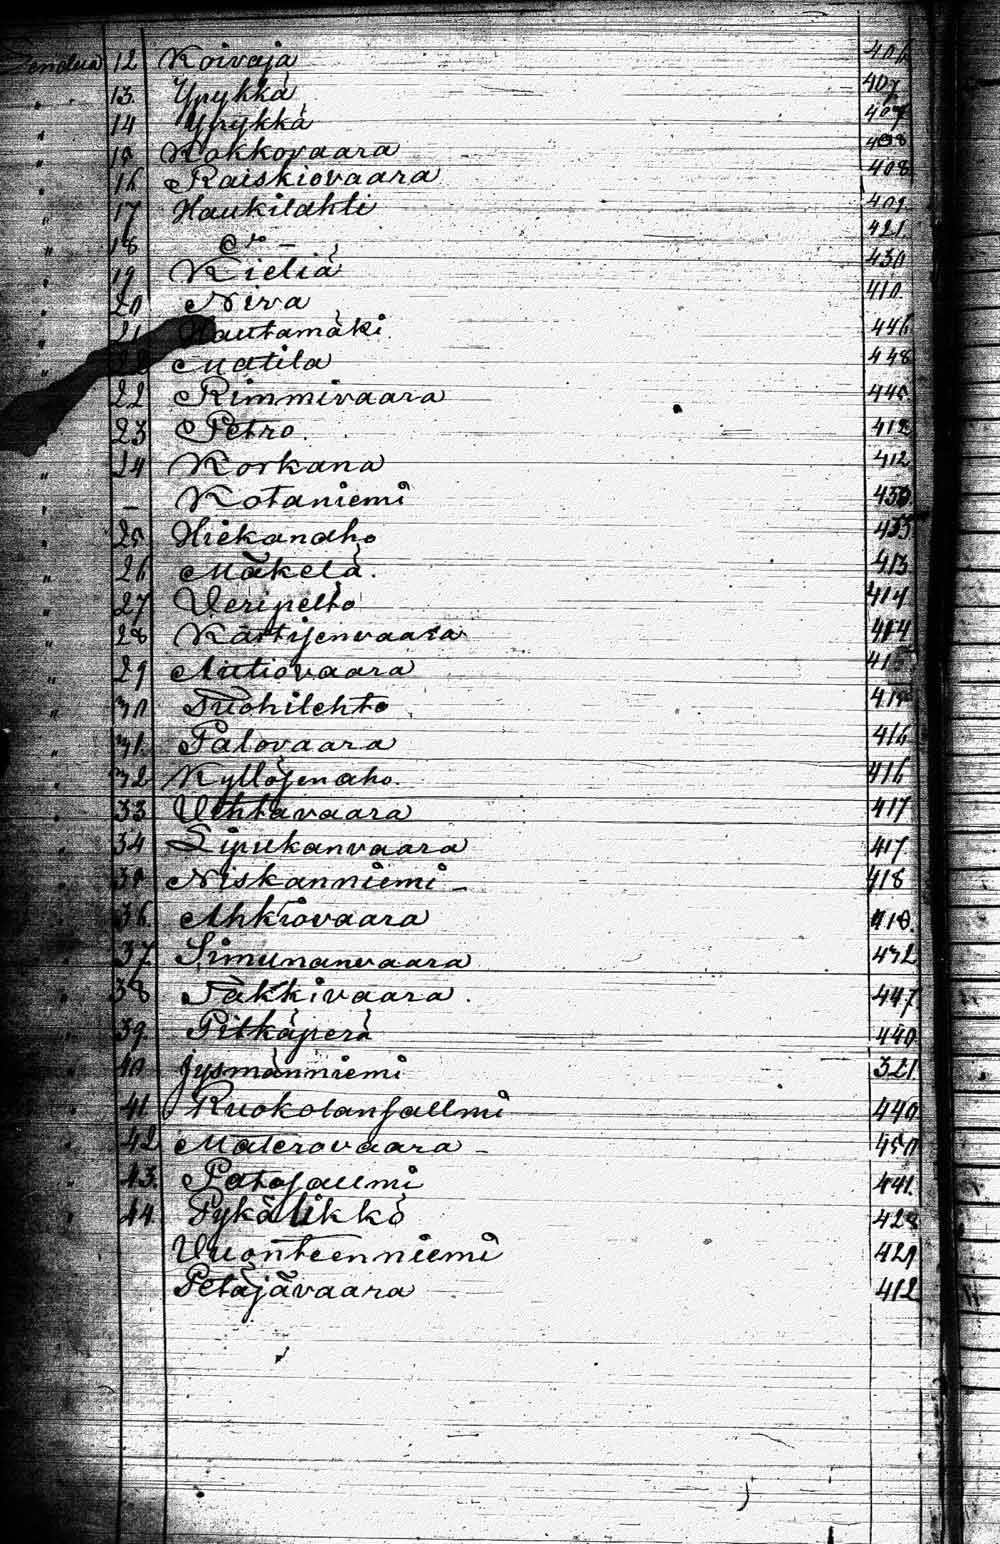 Lendua 12 Koivaja 406
" 13 Ypykkä 407
" 14 Ypykkä 407
" 15 Kokkovaara 408
" 16 Raiskiovaara 408
" 17 Haukilahti 409
" 18 do 421
" 19 Kieliä 430
" 20 Niva 410
" 21 Hautamäki 446
" Matila 448
" 22 Rimmivaara 445
" 23 Petro 412
" 24 Korkana 412
" – Kotaniemi 430
" 25 Hiekanaho 435
" 26 Mäkelä 413
" 27 Veripelto 414
" 28 Kärtijenvaara 414
" 29 Autiovaara 415
" 30 Tuohilehto 415
" 31 Palovaara 416
" 32 Kyllöjenaho 416
" 33 Uehtavaara 417
" 34 Lipukanvaara 417
" 35 Niskanniemi 418
" 36 Ahkiovaara 418
" 37 Simunanvaara 432
" 38 Jakkivaara 447
" 39 Pitkäperä 440
" 40 Jysmänniemi 321
" 41 Ruokolansallmi 440
" 42 Materovaara 450
" 43 Patosallmi 441
" 44 Pykälikkö 428
Vuonteenniemi 429
Petäjävaara 412